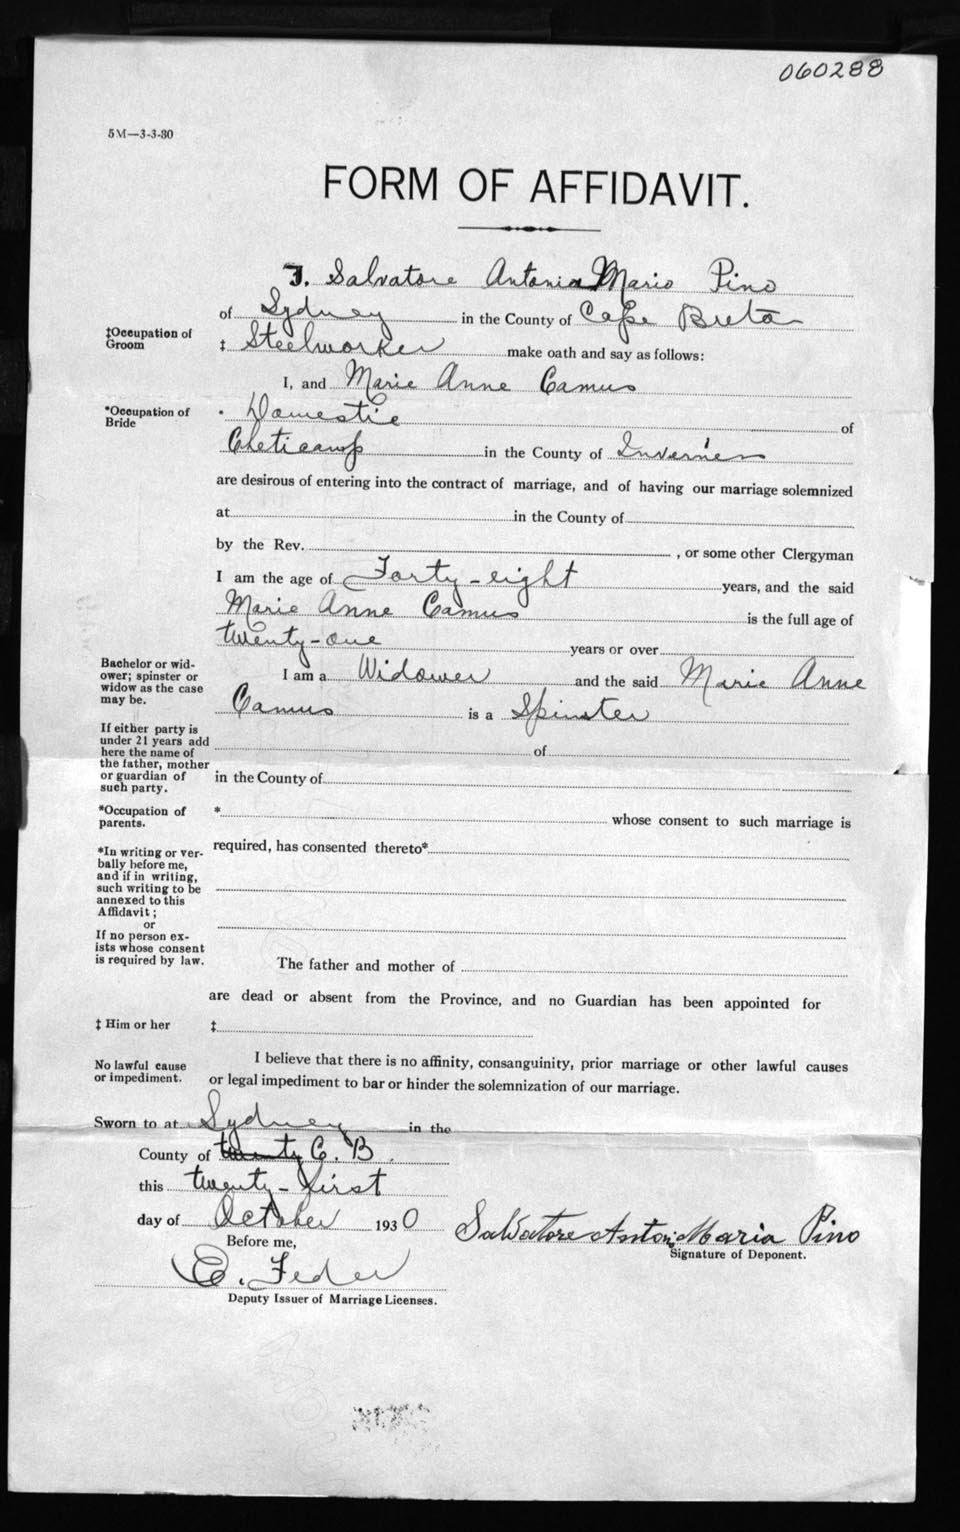 060288
5M—3-3-30
FORM OF AFFIDAVIT.
I. Salvatore Antonia Mario Pino
of Sydney in the County of Cape Breton
‡Occupation of Groom ‡ Steelworker make oath and say as follows:
I, and Marie Anne Camus
*Occupation of Bride * Domestic of
Cheticamp in the County of Inverness
are desirous of entering into the contract of marriage, and of having our marriage solemnized
at in the County of
by the Rev. , or some other Clergyman
I am the age of Forty-eight years, and the said
Marie Anne Camus is the full age of
twenty-one years or over
Bachelor or wid-
ower; spinster or
widow as the case
may be.
I am a Widower and the said Marie Anne
Camus is a Spinster
If either party is
under 21 years add
here the name of
the father, mother
or guardian of
such party.
of
in the County of
*Occupation of
parents.
* whose consent to such marriage is
required, has consented thereto*
*In writing or ver-
bally before me,
and if in writing,
such writing to be
annexed to this
Affidavit;
or
If no person ex-
ists whose consent
is required by law.
The father and mother of
are dead or absent from the Province, and no Guardian has been appointed for
‡ Him or her ‡
No lawful cause
or impediment.
I believe that there is no affinity, consanguinity, prior marriage or other lawful causes
or legal impediment to bar or hinder the solemnization of our marriage.
Sworn to at Sydney in the
County of twenty C. B.
this twenty-first
day of October 1930
Before me,
Salvatore Antonio Maria Pino
Signature of Deponent.
E. Feder
Deputy Issuer of Marriage Licenses.